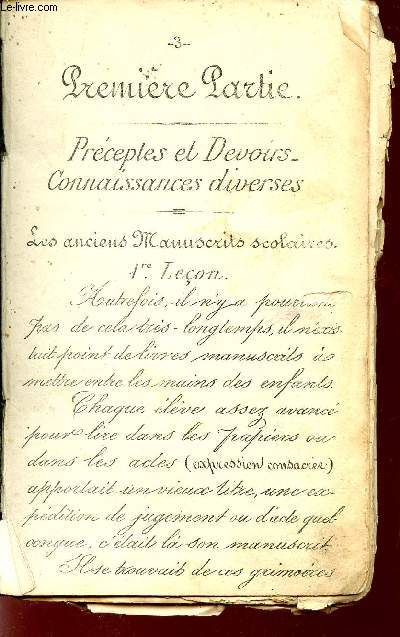 www.le-livre.com
-3-
Première Partie.
Préceptes et Devoirs_
Connaissances diverses
Les anciens Manuscrits scolaires.
1re Leçon.
Autrefois, il n'y a pourtant
pas de cela très-longtemps, il n'exis
tait point de livres manuscrits à
mettre entre les mains des enfants.
Chaque élève assez avancé
pour lire dans les papiers ou
dans les actes (expression consacrée)
apportait un vieux titre, une ex-
pédition de jugement ou d'acte quel
conque, c'était là son manuscrit.
Il se trouvait de ces grimoires